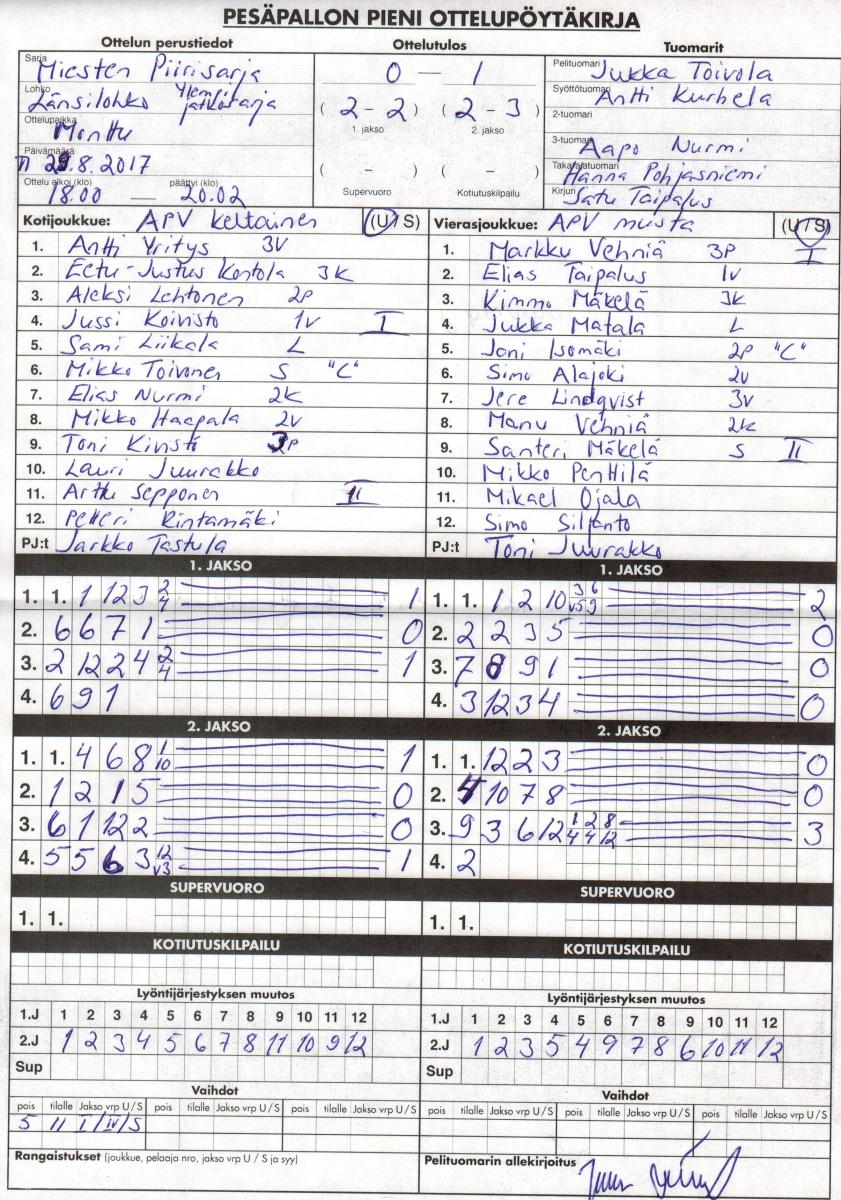 PESÄPALLON PIENI OTTELUPÖYTÄKIRJA
Ottelun perustiedot
Sarja Miesten Piirisarja
Lohko Länsilohko Ylempi jatkosarja
Ottelupaikka Monttu
Päivämäärä TI 29.8.2017
Ottelu alkoi (klo) päättyi (klo)
18.00 — 20.02
Ottelutulos
0 — 1
( 2 - 2 ) ( 2 - 3 )
1. jakso 2. jakso
( - ) ( - )
Supervuoro Kotiutuskilpailu
Tuomarit
Pelituomari Jukka Toivola
Syöttötuomari Antti Kurhela
2-tuomari
3-tuomari Aapo Nurmi
Takarajatuomari Hanna Pohjasniemi
Kirjuri Satu Taipalus
Kotijoukkue: APV keltainen (U/S)
1. Antti Yritys 3V
2. Eetu-Justus Kortola 3K
3. Aleksi Lehtonen 2P
4. Jussi Koivisto 1V I
5. Sami Liikala L
6. Mikko Toivonen S "C"
7. Elias Nurmi 2K
8. Mikko Haapala 2V
9. Toni Kivistö 3P
10. Lauri Juurakko
11. Arttu Sepponen II
12. Petteri Rintamäki
PJ:t Jarkko Tastula
Vierasjoukkue: APV musta (U/S)
1. Markku Vehniä 3P I
2. Elias Taipalus 1V
3. Kimmo Mäkelä 3K
4. Jukka Matala L
5. Joni Isomäki 2P "C"
6. Simo Alajoki 2V
7. Jere Lindqvist 3V
8. Manu Vehniä 2K
9. Santeri Mäkelä S II
10. Mikko Penttilä
11. Mikael Ojala
12. Simo Siljanto
PJ:t Toni Juurakko
1. JAKSO
1. 1. 1 12 3 2 4 1
2. 6 6 7 1 0
3. 2 12 2 4 2 4 1
4. 6 9 1
1. JAKSO
1. 1. 1 2 10 3 6 V5 9 2
2. 2 2 3 5 0
3. 7 8 9 1 0
4. 3 12 3 4 0
2. JAKSO
1. 1. 4 6 8 1 10 1
2. 1 2 1 5 0
3. 6 1 12 2 0
4. 5 5 6 3 12 V3 1
2. JAKSO
1. 1. 12 2 3 0
2. 4 10 7 8 0
3. 9 3 6 12 1 2 8 4 4 12 3
4. 2
SUPERVUORO
1. 1.
SUPERVUORO
1. 1.
KOTIUTUSKILPAILU
KOTIUTUSKILPAILU
Lyöntijärjestyksen muutos
1.J 1 2 3 4 5 6 7 8 9 10 11 12
2.J 1 2 3 4 5 6 7 8 11 10 9 12
Sup
Lyöntijärjestyksen muutos
1.J 1 2 3 4 5 6 7 8 9 10 11 12
2.J 1 2 3 5 4 9 7 8 6 10 11 12
Sup
Vaihdot
pois tilalle Jakso vrp U/S pois tilalle Jakso vrp U/S pois tilalle Jakso vrp U/S
5 11 I/IV/S
Vaihdot
pois tilalle Jakso vrp U/S pois tilalle Jakso vrp U/S pois tilalle Jakso vrp U/S
Rangaistukset (joukkue, pelaaja nro, jakso vrp U / S ja syy)
Pelituomarin allekirjoitus